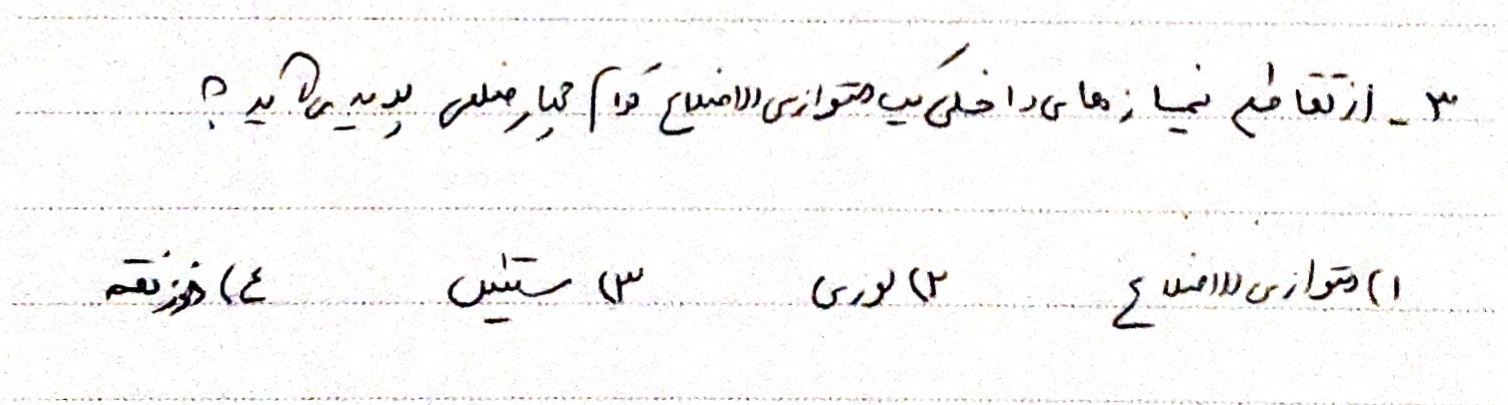 ۳ـ از تقاطع نیمسازهای داخلی یک متوازی الاضلاع کدام چهارضلعی پدید می‌آید؟
۱) متوازی الاضلاع ۲) لوزی ۳) مستطیل ۴) ذوزنقه